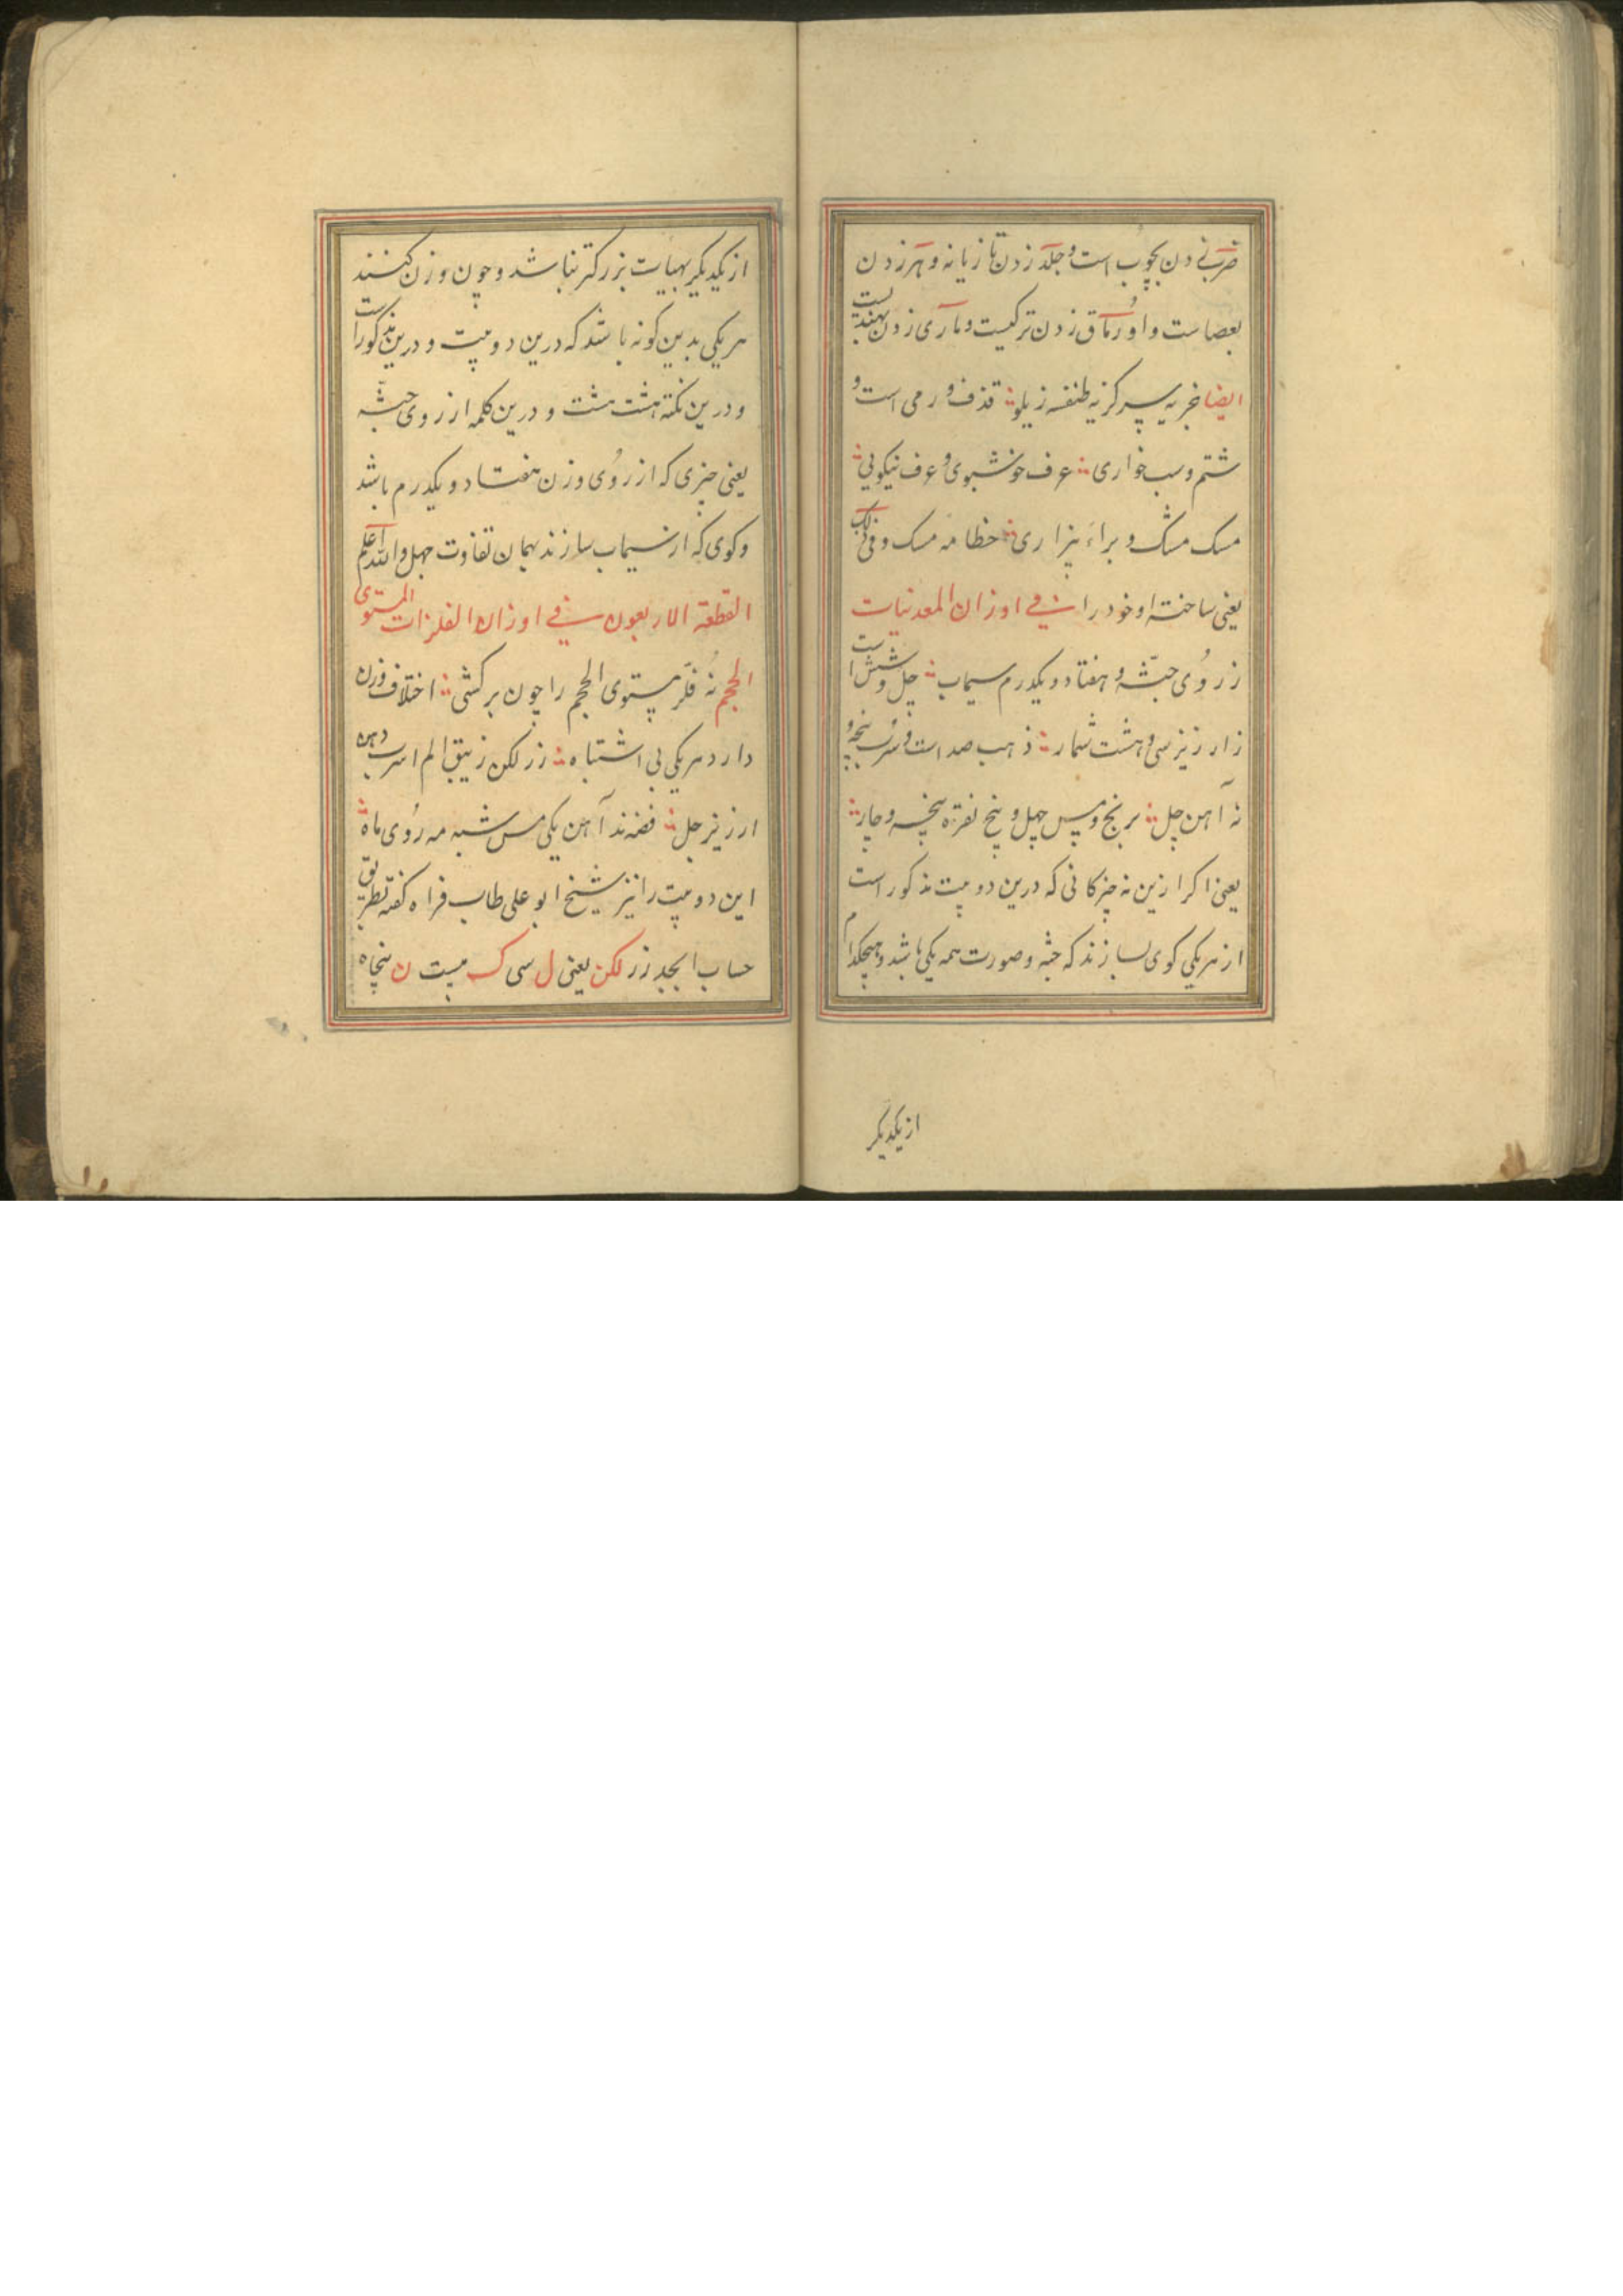 ضرب زدن بچوب است و جلد زدن تازیانه و هر زدن
بعصاست و اورماق زدن ترکیست و ماری زدن بهندیست
ایضا نخر به سپر کزیه طنفسه زیلو قذف و رمی است و
شتم و سب خواری عرف خوشبوی و عرف نیکویی
مسک مشک و براء بیزاری خطامه مسک و فی
یعنی ساخته او خود را فی اوزان المعدنیات
ز روی جثه هفتاد و یکدرم سیماب چل و شش است
ز ارزیز سی و هشت شمار ذهب صد است و سرب پنجه و
نه آهن چل برنج و مس چهل و پنج نقره پنجه و چار
یعنی اکر ازین نه چیز کانی که درین دو بیت مذکور است
از هر یکی کوی بسازند که جثه و صورت همه یکی باشد و هیچکدام
از یکدیکر
از یکدیکر بهیات بزرکتر نباشد و چون وزن کنند
هر یکی بدین کونه باشد که درین دو بیت و درین مذکور است
و درین نکته هشت هشت و درین کلمه از روی جثه
یعنی چیزی که از روی وزن هفتاد و یکدرم باشد
و کوی که از سیماب سازند بهمان تفاوت چهل والله اعلم
القطعة الاربعون فی اوزان الفلزات المستوی
الحجم نه فلز مستوی الحجم را چون برکشی اختلاف وزن
دارد هر یکی بی اشتباه زر لکن زیبق الم اسرب دهن
ارزیز حل فضه ند آهن یکی مس شبه مه روی ماه
این دو بیت را نیز شیخ ابو علی طاب ثراه کفته بطریق
حساب ابجد زر لکن یعنی ل سی ک بیست ن پنجاه